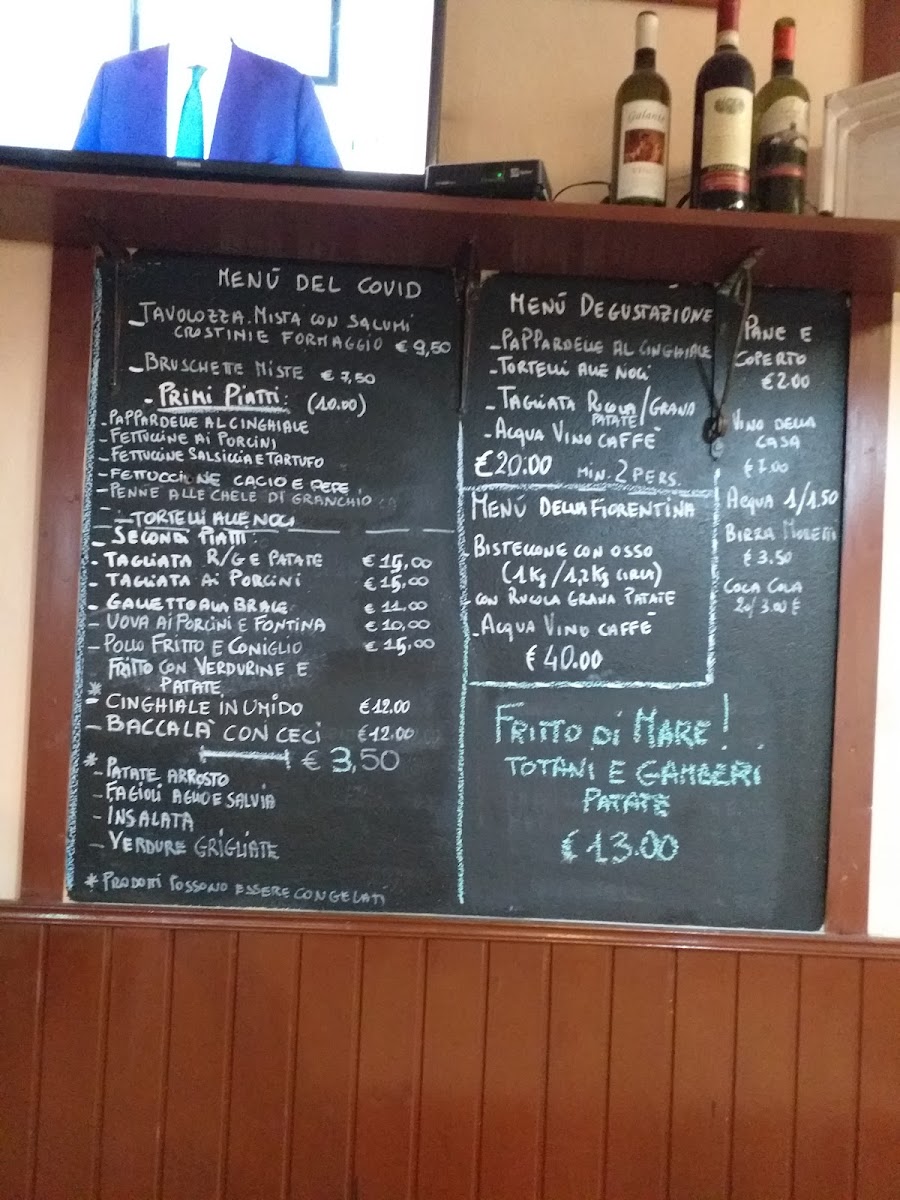 SAMSUNG
Galante
MENÚ DEL COVID
TAVOLOZZA MISTA CON SALUMI
CROSTINI E FORMAGGIO € 9,50
- BRUSCHETTE MISTE € 7,50
- PRIMI PIATTI: (10.00)
- PAPPARDELLE AL CINGHIALE
- FETTUCCINE AI PORCINI
- FETTUCCINE SALSICCIA E TARTUFO
- FETTUCCINE CACIO E PEPE
- PENNE ALLE CHELE DI GRANCHIO
- TORTELLI ALLE NOCI
- SECONDI PIATTI:
- TAGLIATA R/G E PATATE € 15,00
- TAGLIATA AI PORCINI € 15,00
- GALLETTO ALLA BRACE € 11.00
- UOVA AI PORCINI E FONTINA € 10,00
- POLLO FRITTO E CONIGLIO € 15,00
FRITTO CON VERDURINE E
PATATE
*
- CINGHIALE IN UMIDO €12.00
- BACCALÀ CON CECI €12.00
€ 3,50
* - PATATE ARROSTO
- FAGIOLI AGLIO E SALVIA
- INSALATA
- VERDURE GRIGLIATE
* PRODOTTI POSSONO ESSERE CONGELATI
MENÚ DEGUSTAZIONE
- PAPPARDELLE AL CINGHIALE
- TORTELLI ALLE NOCI
- TAGLIATA RUCOLA/GRANA
PATATE
- ACQUA VINO CAFFÈ
€20.00 MIN. 2 PERS.
MENÚ DELLA FIORENTINA
BISTECCONE CON OSSO
(1Kg/1,2Kg CIRCA)
CON RUCOLA GRANA PATATE
- ACQUA VINO CAFFÈ
€40.00
FRITTO DI MARE!
TOTANI E GAMBERI
PATATE
€13.00
PANE E
COPERTO
€2.00
VINO DELLA
CASA
€7.00
ACQUA 1/1.50
BIRRA MORETTI
€ 3.50
COCA COLA
20/3.00 €